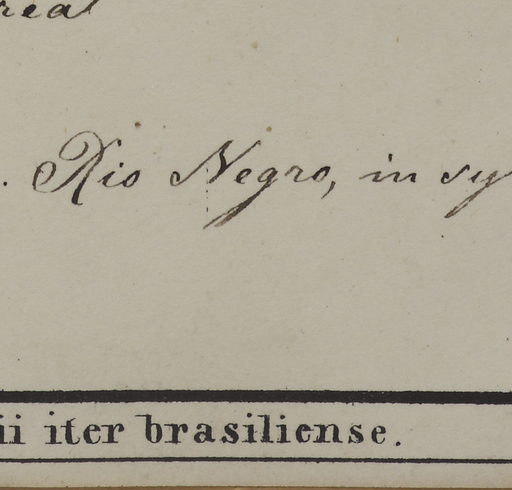 . Rio Negro, in sy
ii iter brasiliense.